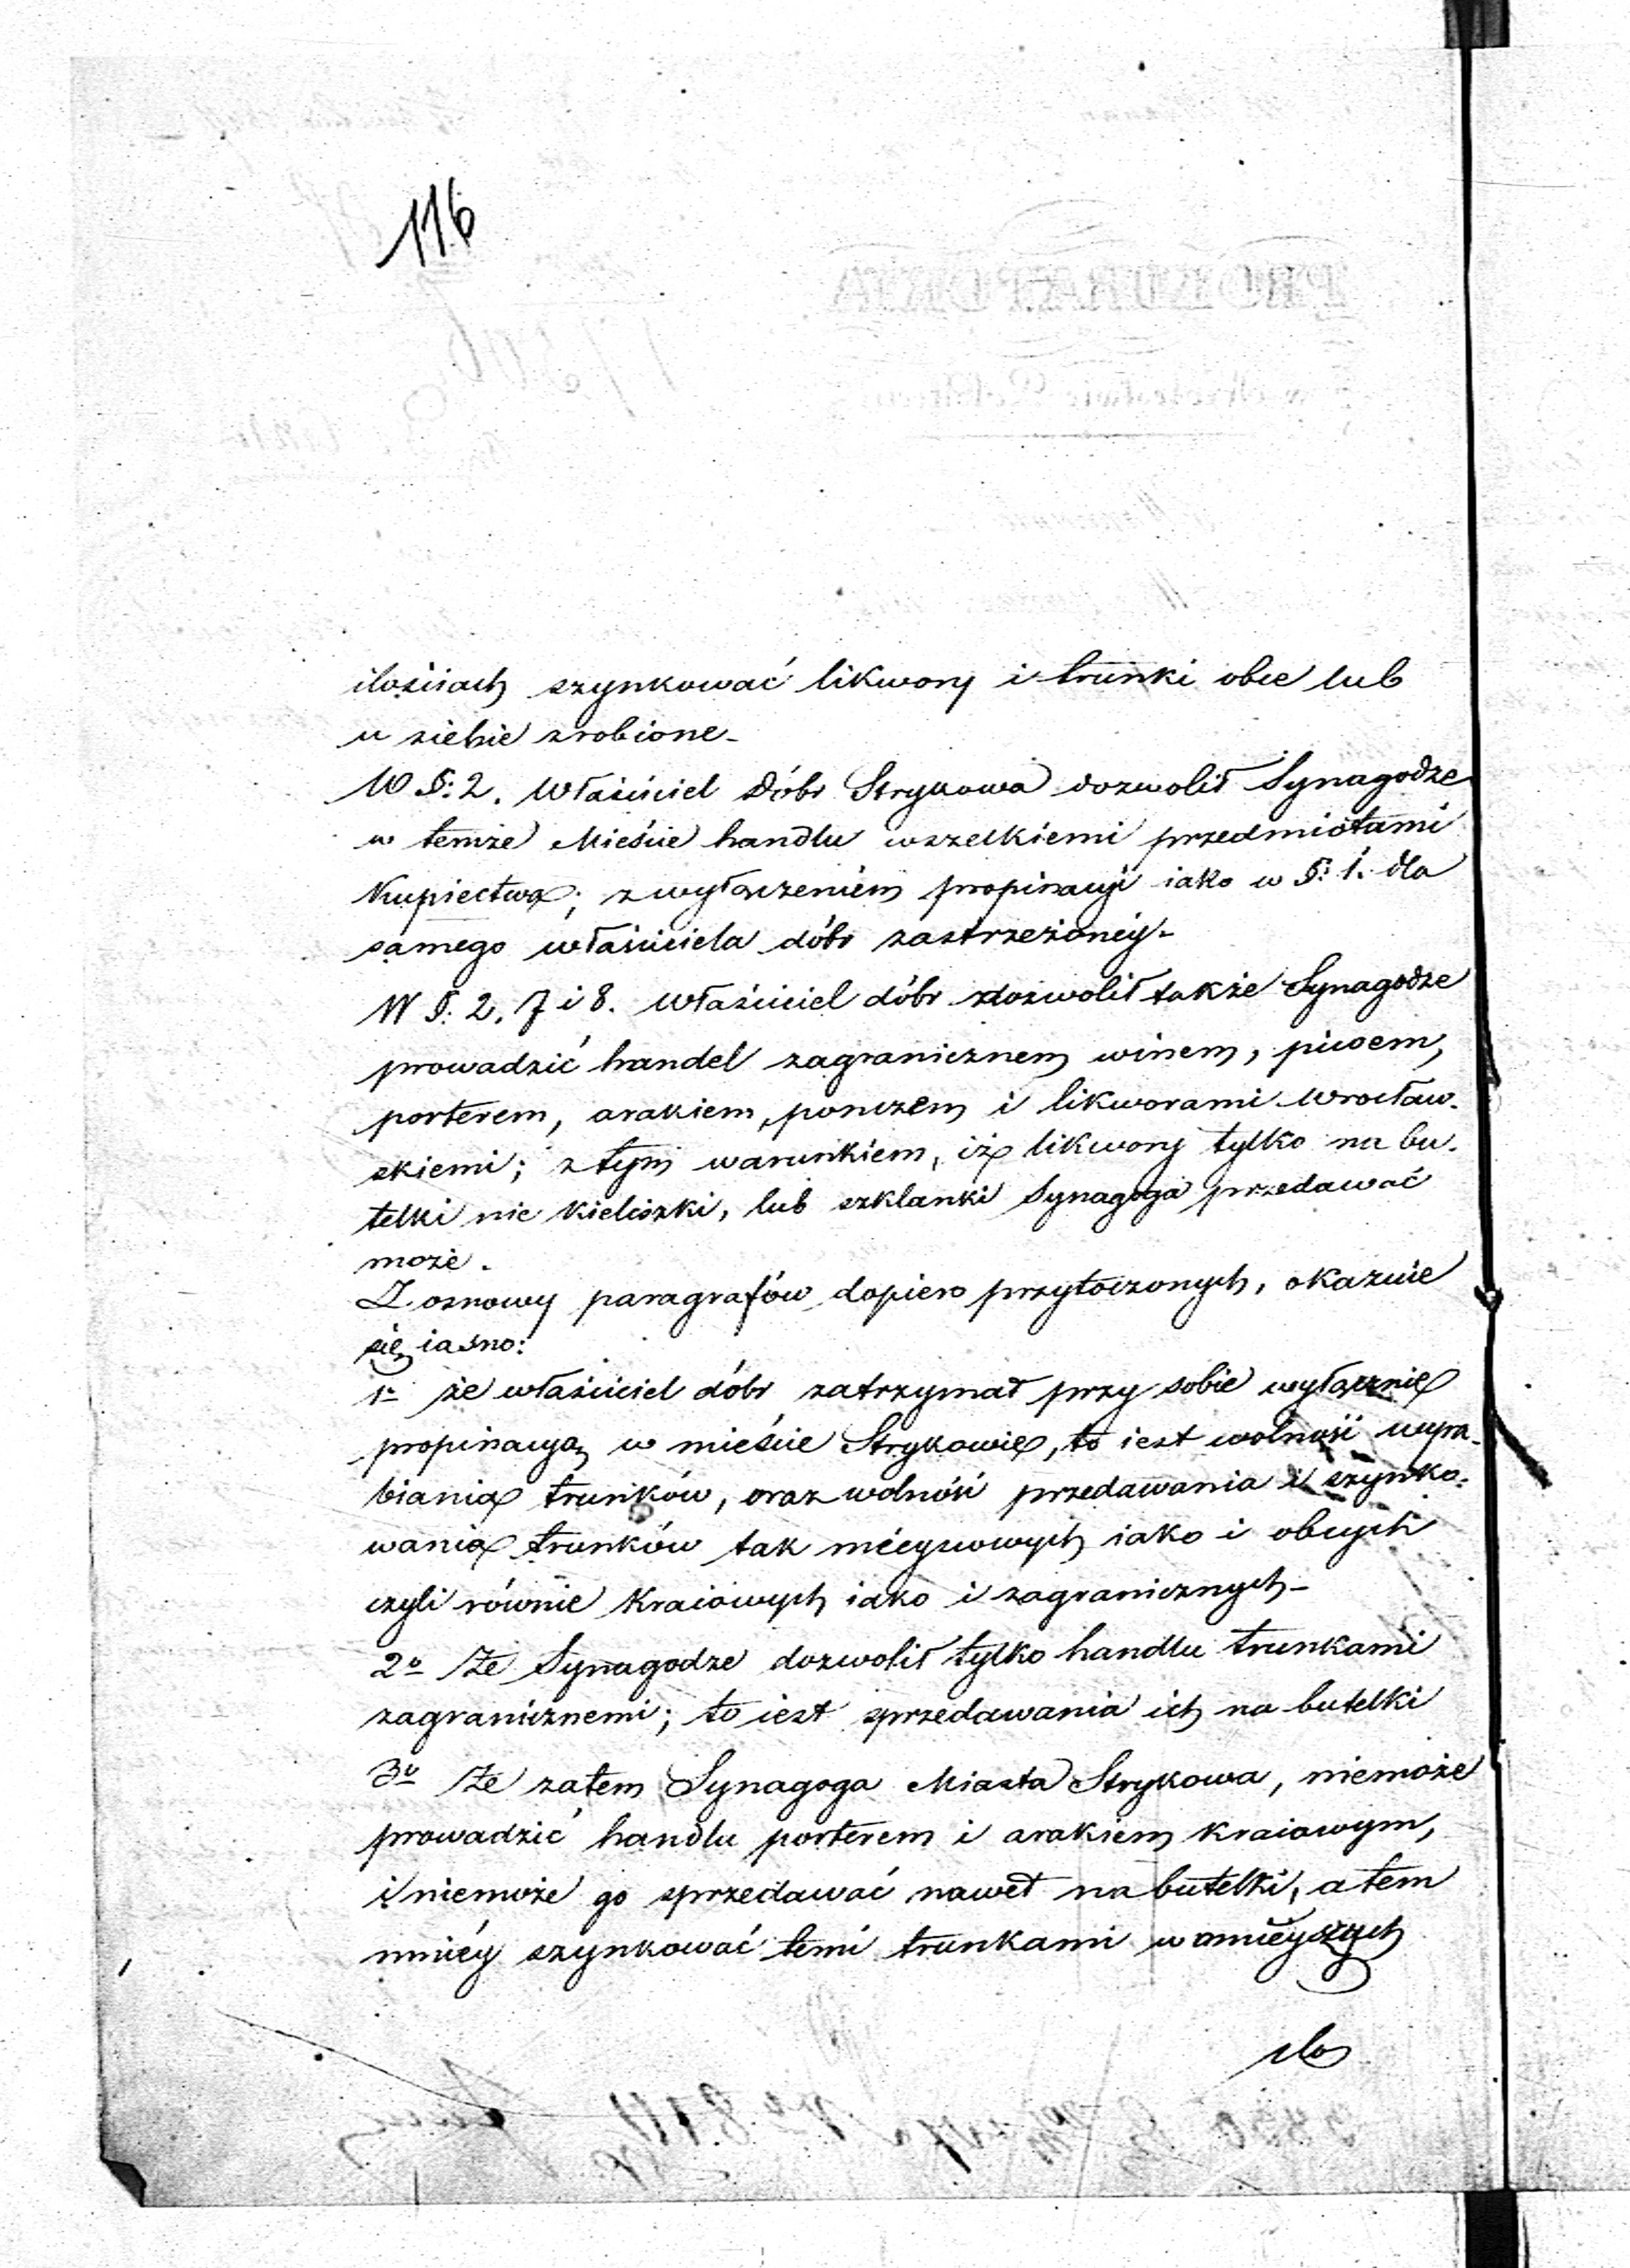 116
ilościach szynkować likwory i trunki obce lub
u siebie zrobione -
W §: 2. Właściciel Dóbr Strykowa dozwolił Synagodze
w temże Mieście handlu wszelkiemi przedmiotami
Kupiectwa; z wyłączeniem propinacyi iako w §: 1. dla
samego właściciela dóbr zastrzeżonéy -
W §: 2. 7 i 8. Właściciel dóbr dozwolił także Synagodze
prowadzić handel zagranicznem winem, piwem,
porterem, arakiem, ponczem i likworami Wrocław-
skiemi; z tym warunkiem, iż likwory tylko na bu-
telki nie kieliszki, lub szklanki Synagoga przedawać
może.
Z osnowy paragrafów dopiero przytoczonych, okazuie
się iasno:
1o że właściciel dóbr zatrzymał przy sobie wyłącznie
propinacyą w mieście Strykowie, to iest wolność wyra-
biania trunków, oraz wolność przedawania i szynko-
wania trunków tak mieyscowych iako i obcych
czyli równie Kraiowych iako i zagranicznych -
2o że Synagodze dozwolił tylko handlu trunkami
zagranicznemi; to iest sprzedawania ich na butelki
3o że zatem Synagoga Miasta Strykowa, niemoże
prowadzić handlu porterem i arakiem kraiowym,
i niemoże go sprzedawać nawet na butelki, a tem
mniéy szynkować temi trunkami w mnieyszych